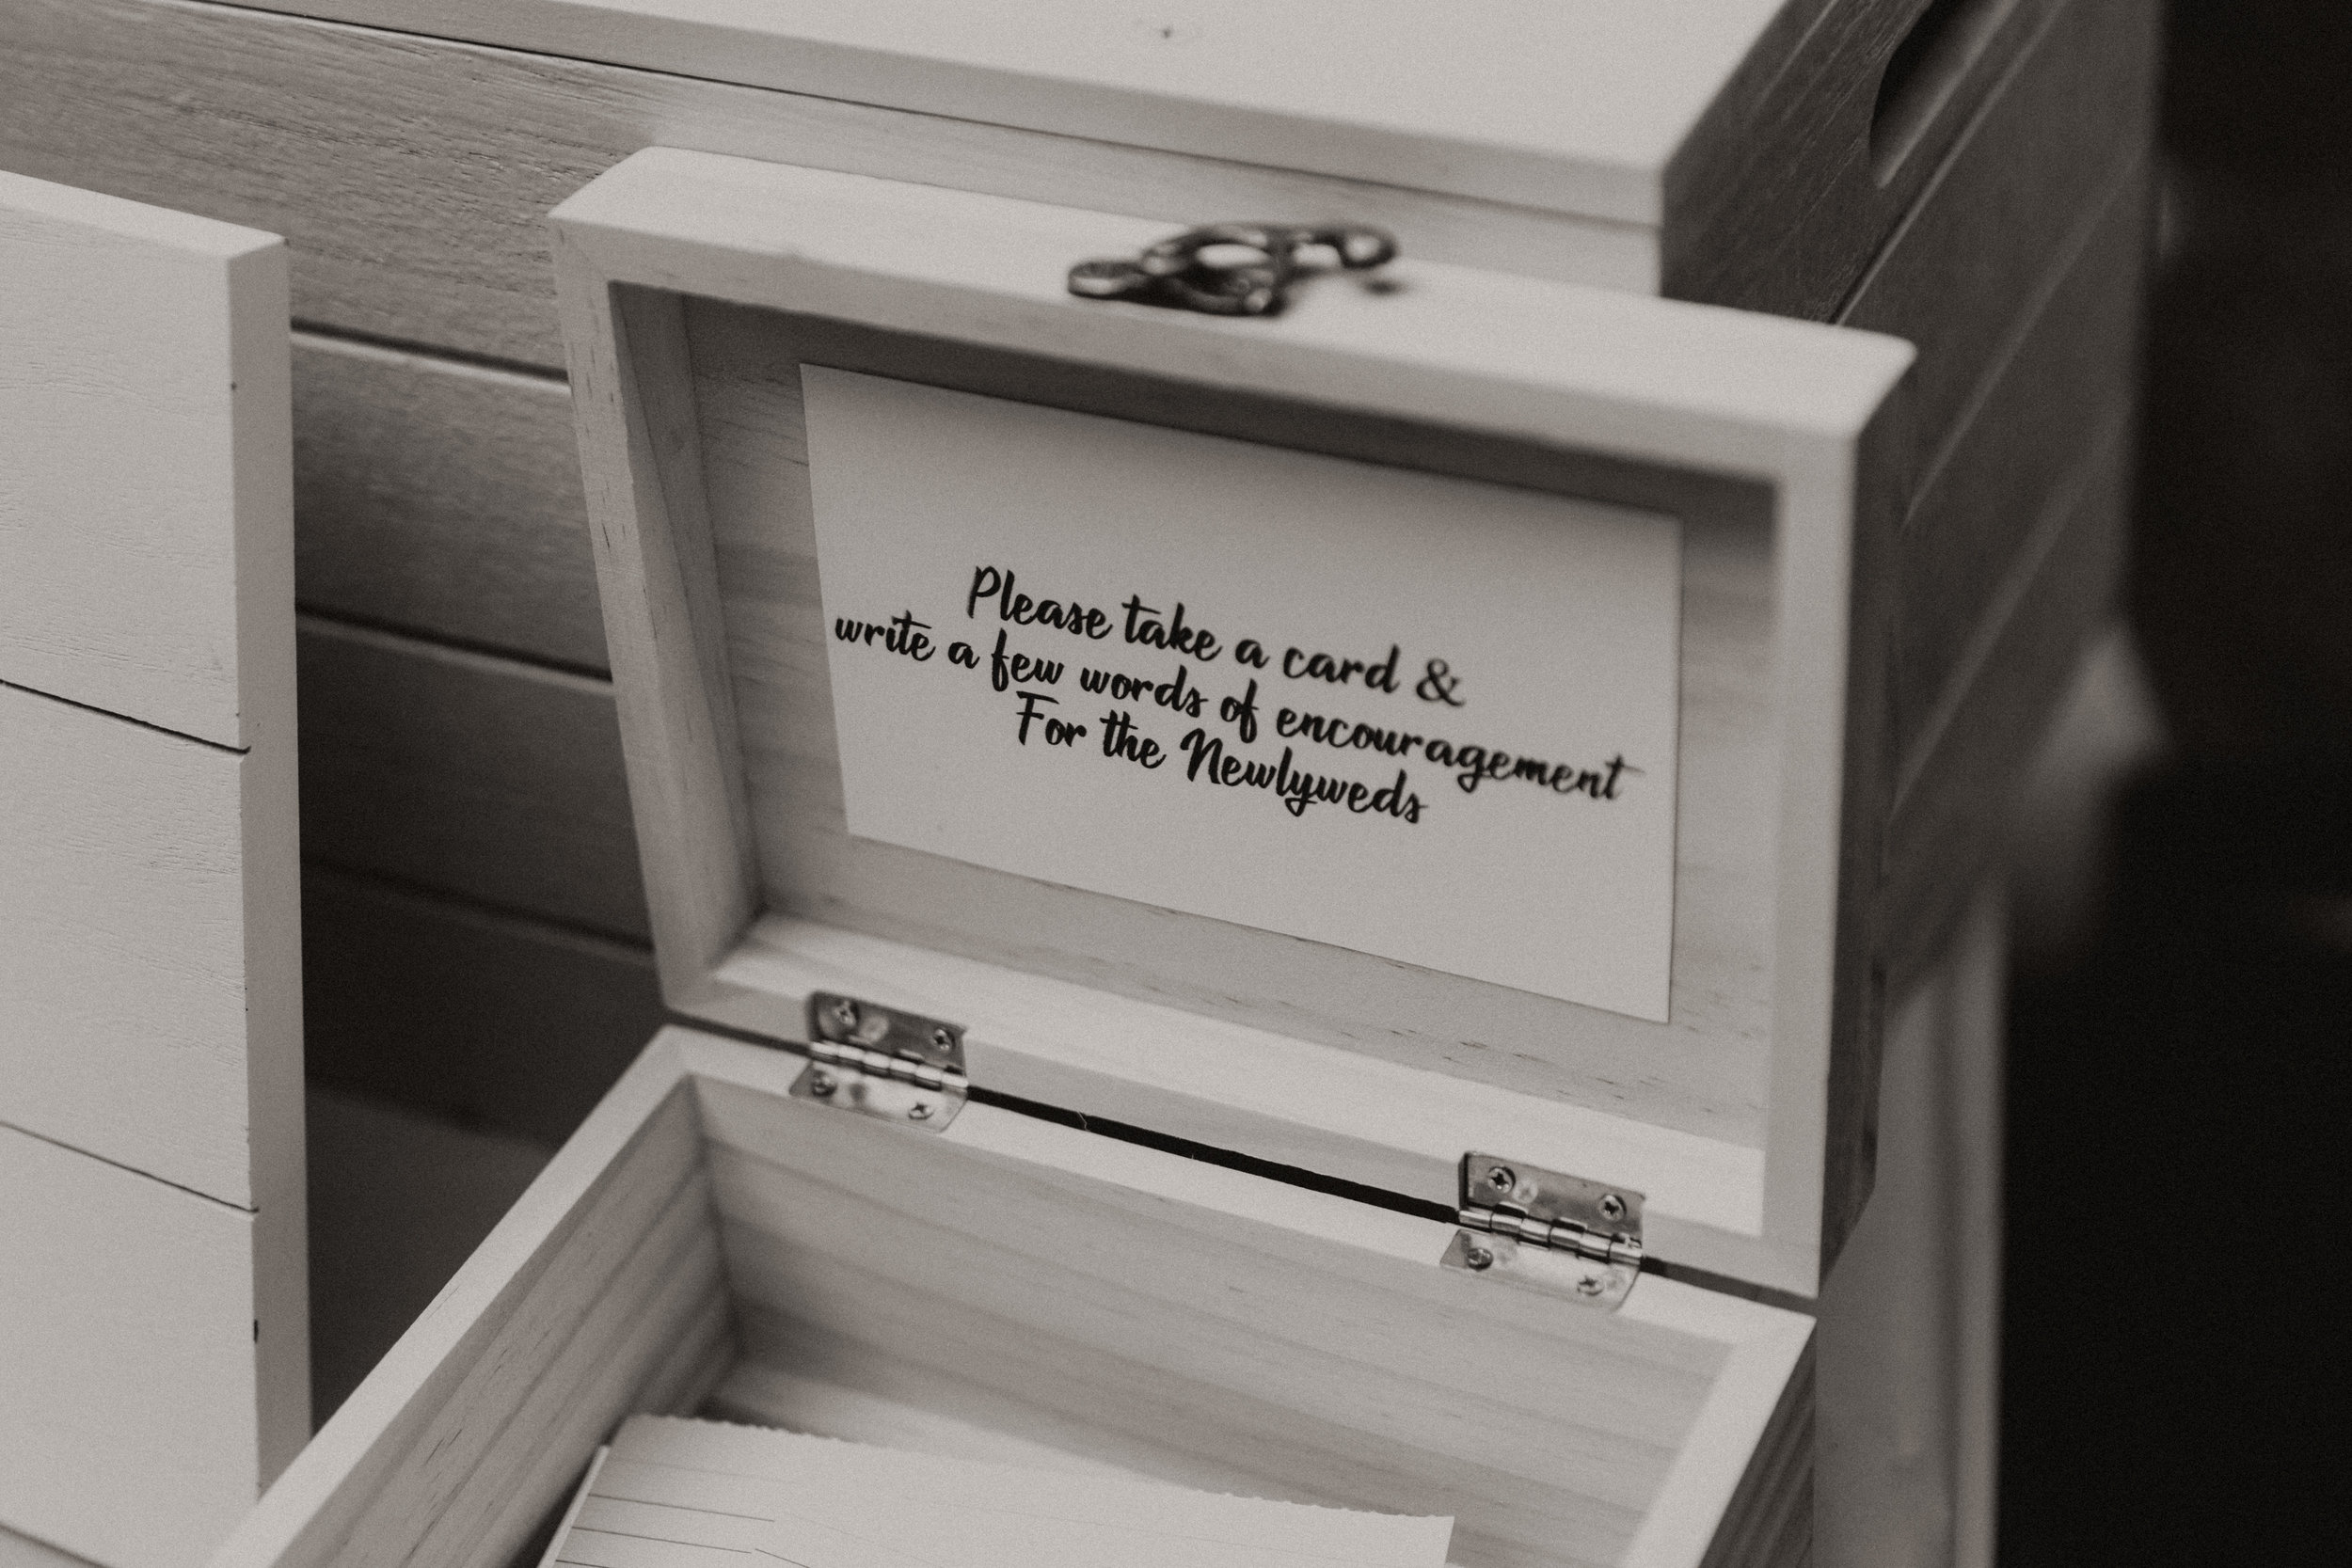 Please take a card &
write a few words of encouragement
For the Newlyweds